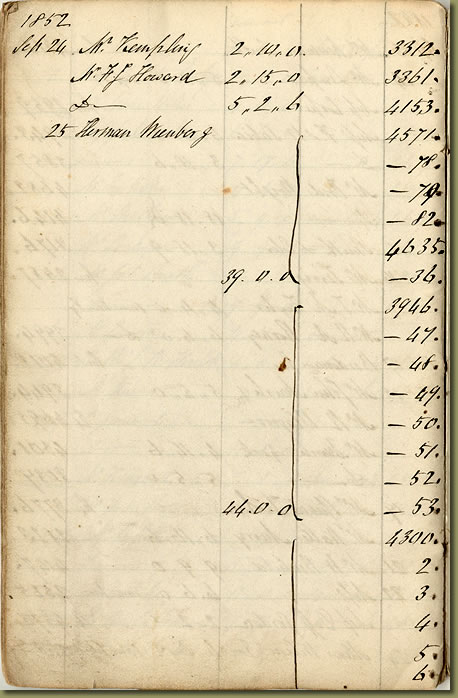 1852
Sep 24 Mr Kempling 2,10,0. 3312.
Mr F J Howard 2,15,0 3361.
Do 5,2,6 4153.
25 Herman 4571.
— 78.
— 79.
— 82.
4635.
39.0.0 — 36.
3946.
— 47.
— 48.
— 49.
— 50.
— 51.
— 52.
44.0.0 — 53.
4300.
2.
3.
4.
5.
6.